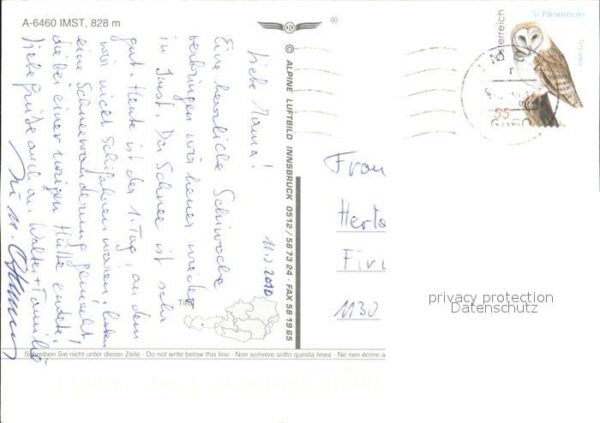 A-6460 IMST, 828 m
Liebe Mama!
11.3.2010
Eine herrliche Schiwoche
verbringen wir heuer wieder
in Imst. Der Schnee ist sehr
gut. Heute ist der 1. Tag, an dem
wir nicht Schifahren waren, haben
eine Schneewanderung gemacht,
die bei einer urigen Hütte endete!
Liebe Grüße auch an Walter + Familie
© ALPINE LUFTBILD INNSBRUCK 0512 / 58 73 24 · FAX 58 19 65
Schleiereule
Tyto alba
Österreich
55
Frau
Herta
1130
privacy protection
Datenschutz
TIROL
Schreiben Sie nicht unter dieser Zeile · Do not write below this line · Non scrivere sotto questa linea · Ne rien écrire a